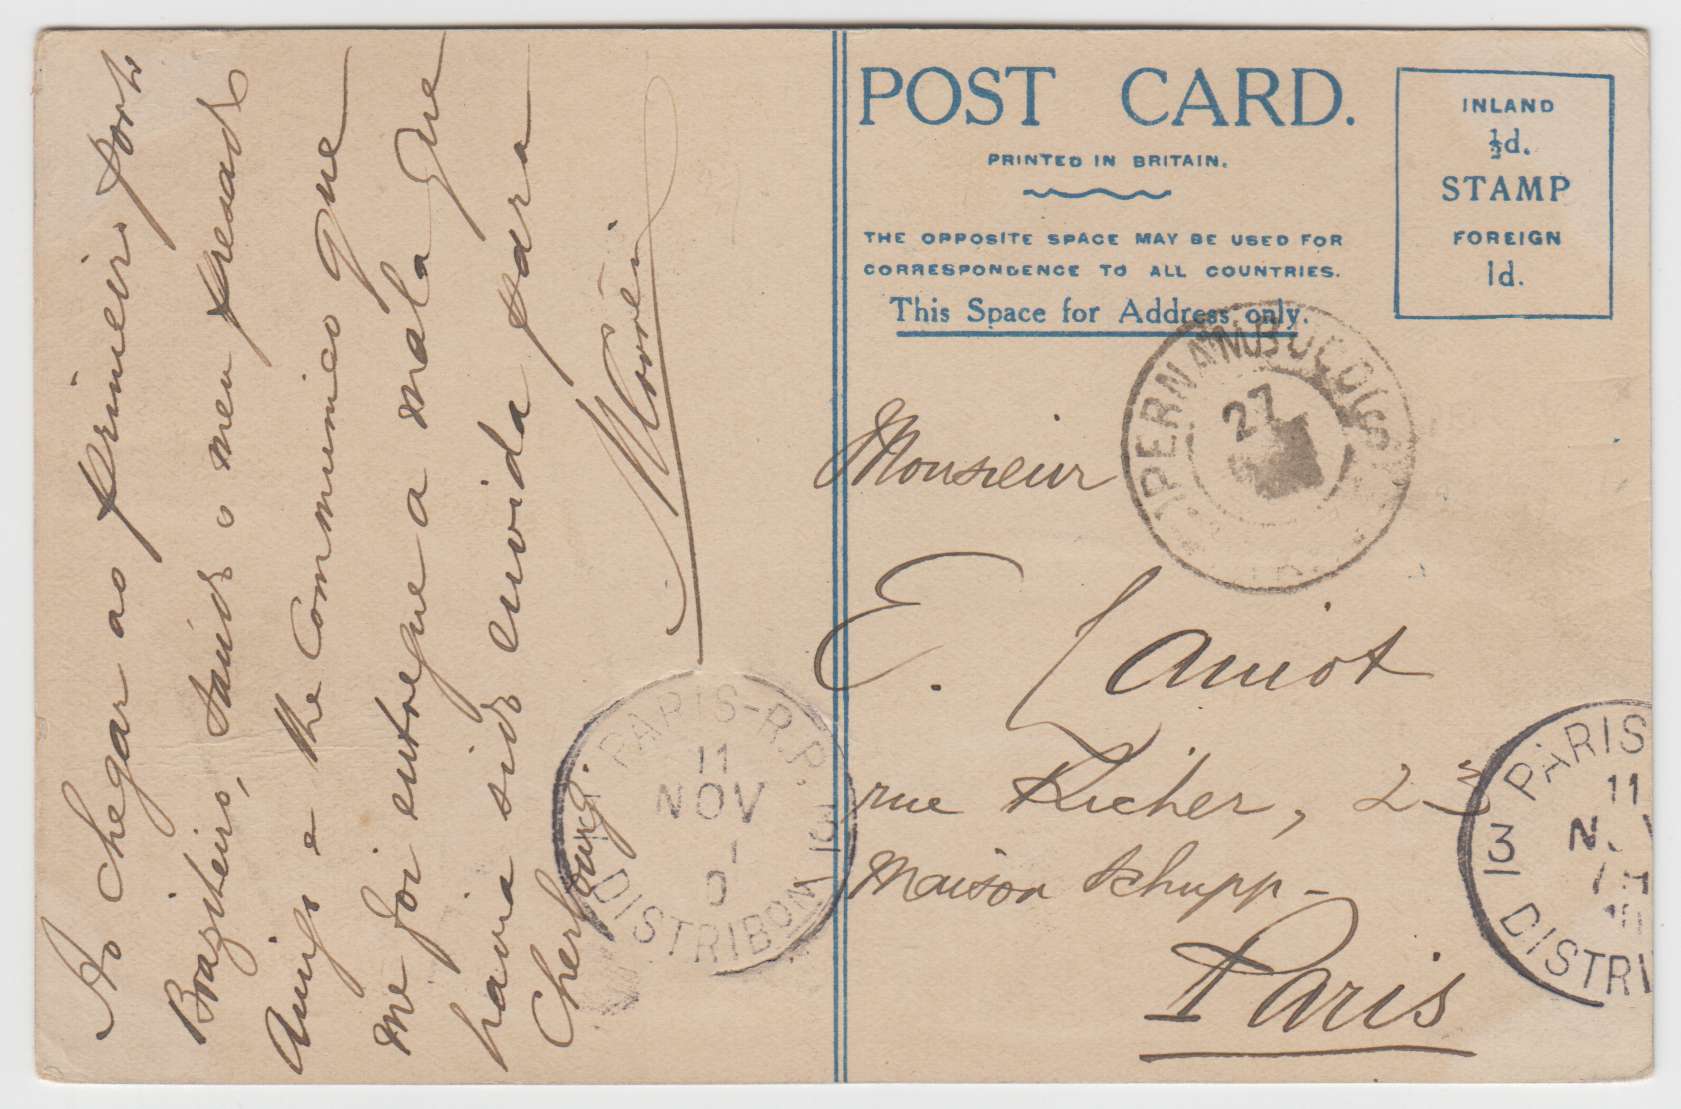 Ao chegar ao primeiro porto
Brazileiro, saúdo o meu presado
Amigo e lhe communico que
me foi entregue a mala que
havia sido enviada para
Cherbourg.
POST CARD.
PRINTED IN BRITAIN.
THE OPPOSITE SPACE MAY BE USED FOR
CORRESPONDENCE TO ALL COUNTRIES.
This Space for Address only.
INLAND
½d.
STAMP
FOREIGN
1d.
PERNAMBUCO
27
Monsieur
E. Lamiot
rue Richer, 23
Maison Schupp-
Paris
PARIS-R.P.
11
NOV
13
DISTRIBON
PARIS
11
13
DISTRI